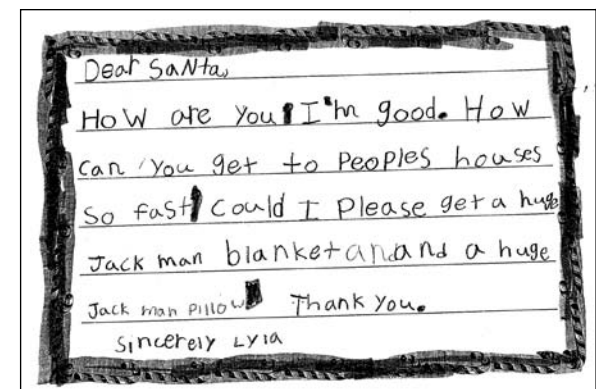 Dear SaNta,
HoW are you I'm good. How
can you get to PeoPles houses
So fast could I Please get a huge
Jack man blanket and and a huge
Jack man Pillow Thank you.
Sincerely Lyla